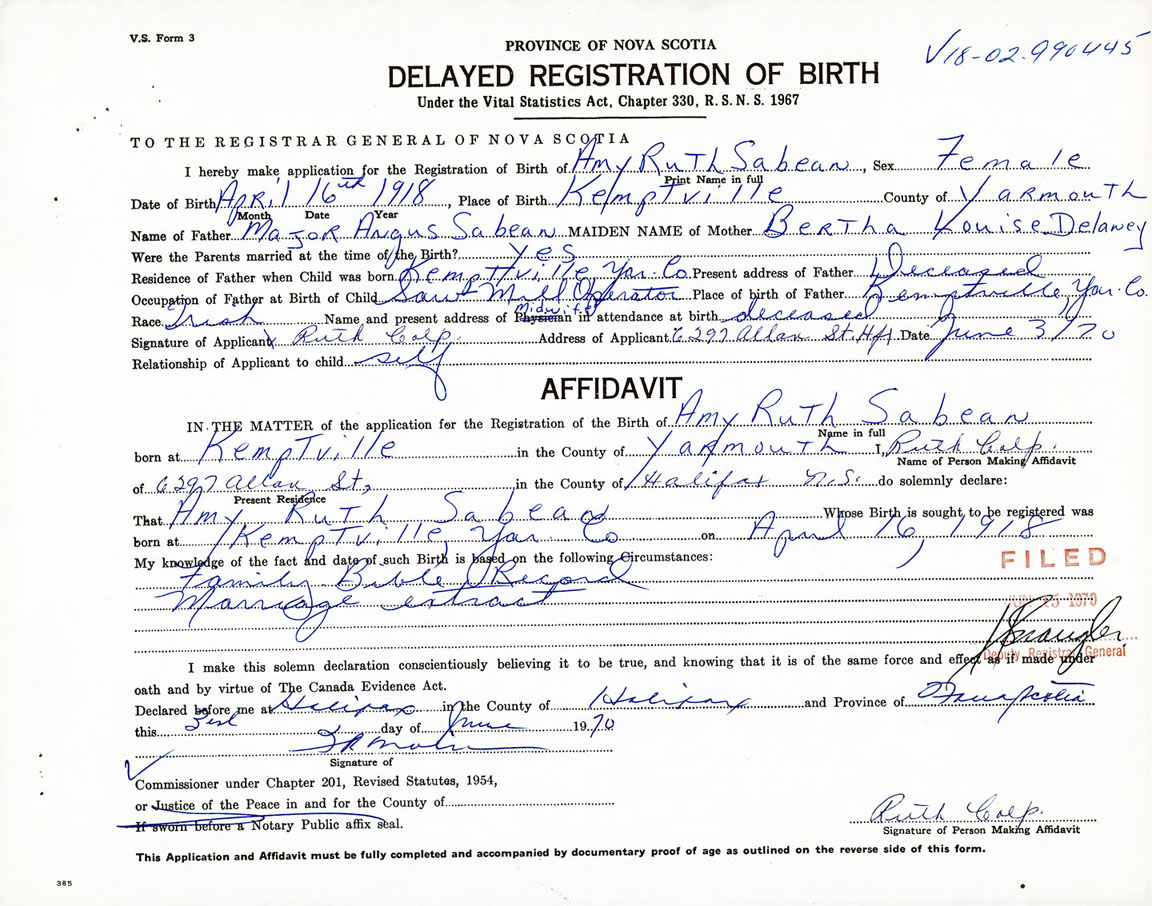 V.S. Form 3
V18-02-990445
PROVINCE OF NOVA SCOTIA
DELAYED REGISTRATION OF BIRTH
Under the Vital Statistics Act, Chapter 330, R. S. N. S. 1967
TO THE REGISTRAR GENERAL OF NOVA SCOTIA
I hereby make application for the Registration of Birth of Amy Ruth Sabean, Sex Female
Print Name in full
Date of Birth April 16th 1918, Place of Birth Kemptville County of Yarmouth
Month Date Year
Name of Father Major Angus Sabean MAIDEN NAME of Mother Bertha Louise Delaney
Were the Parents married at the time of the Birth? Yes
Residence of Father when Child was born Kemptville, Yar. Co. Present address of Father Deceased
Occupation of Father at Birth of Child Saw Mill Operator Place of birth of Father Kemptville, Yar. Co.
Race Irish Name and present address of Physician Midwife in attendance at birth deceased
Signature of Applicant X Ruth Colp. Address of Applicant 6297 Allan St. Hfx Date June 3/70
Relationship of Applicant to child self
AFFIDAVIT
IN THE MATTER of the application for the Registration of the Birth of Amy Ruth Sabean
Name in full
born at Kemptville in the County of Yarmouth I, Ruth Colp.
Name of Person Making Affidavit
of 6297 Allan St, in the County of Halifax N.S. do solemnly declare:
Present Residence
That Amy Ruth Sabean Whose Birth is sought to be registered was
born at Kemptville, Yar. Co on April 16, 1918
My knowledge of the fact and date of such Birth is based on the following Circumstances:
Family Bible Record
Marriage extract
FILED
JUN 25 1970
Deputy Registrar General
I make this solemn declaration conscientiously believing it to be true, and knowing that it is of the same force and effect as if made under
oath and by virtue of The Canada Evidence Act.
Declared before me at Halifax in the County of Halifax and Province of Nova Scotia
this 3rd day of June 1970
Signature of
Commissioner under Chapter 201, Revised Statutes, 1954,
or Justice of the Peace in and for the County of
If sworn before a Notary Public affix seal.
Ruth Colp.
Signature of Person Making Affidavit
This Application and Affidavit must be fully completed and accompanied by documentary proof of age as outlined on the reverse side of this form.
385